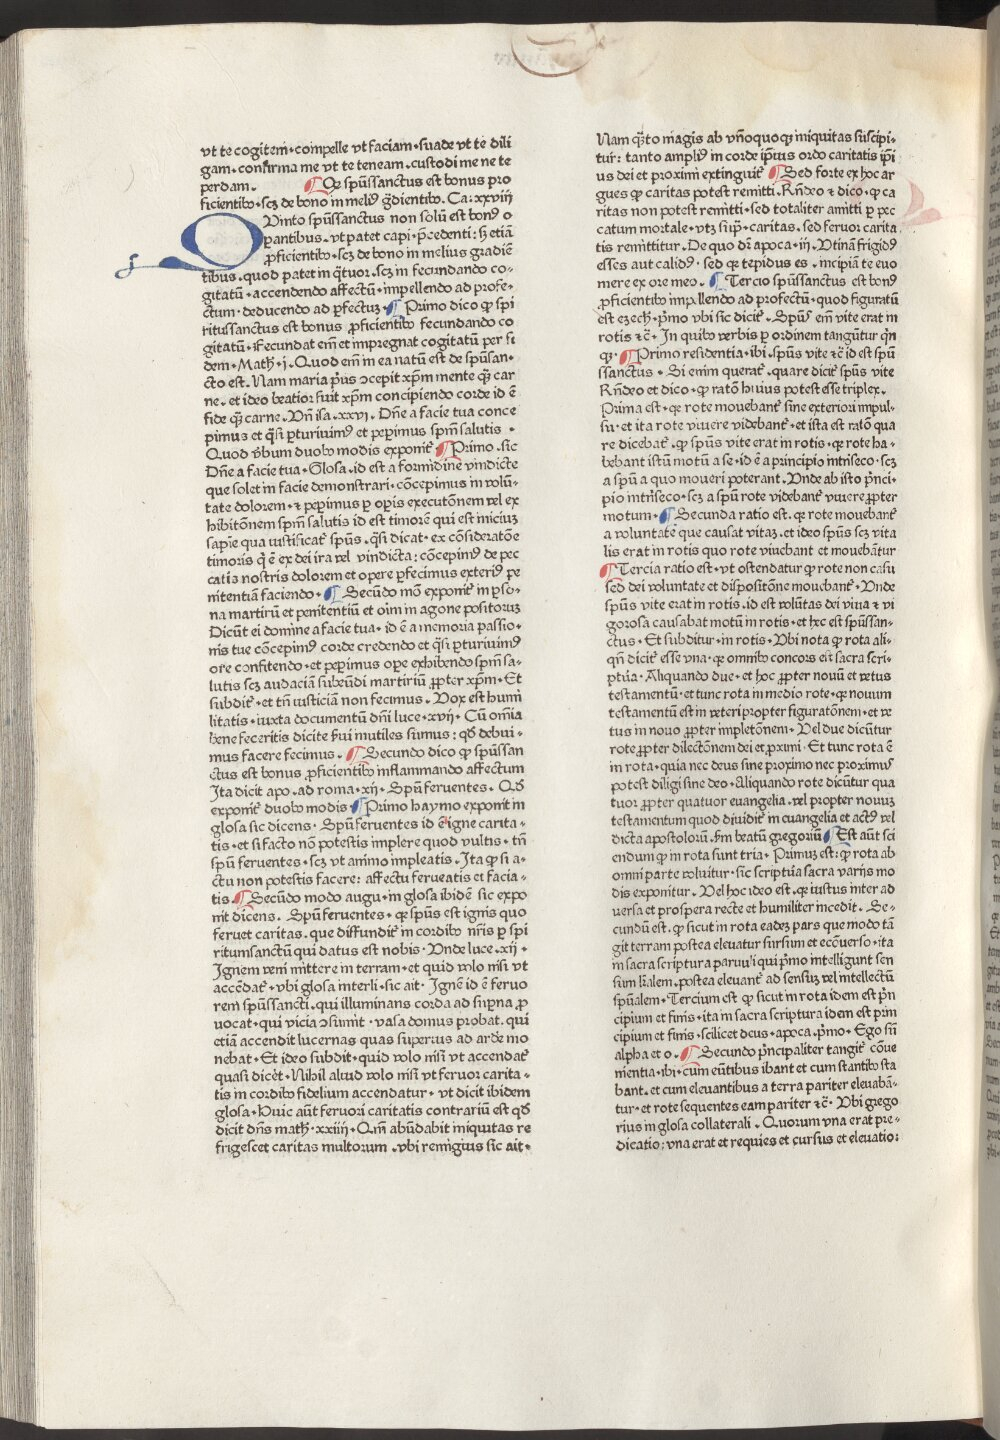 vt te cogitem̄·compelle vt faciam·suade vt te dili
gam·confirma me vt te teneam·custodi me ne te
perdam. ¶ Qꝙ spūssanctus est bonus pro
ficientibꝰ·scꝫ de bono in meliꝰ ḡdientibꝰ. Ca:xxviii
QVinto spūssanctus non solū est bonꝰ o
ꝑantibus·vt patet capi·p̄cedenti:ꜩ etiā
ꝓficientibꝰ·scꝫ de bono in melius gradiē
tibus·quod patet in q̄tuor·scꝫ in fecundando co-
gitatū·accendendo affectū·impellendo ad profe-
ctum·deducendo ad ꝑfectuꝫ·¶ Primo dico ꝙ spi
ritussanctus est bonus ꝓficientibꝰ fecundando co
gitatū·Fecundat em̄ et impregnat cogitatū per fi
dem·Math̄·i·Quod em̄ in ea natū est de spūsan-
cto est. Nam maria p̄us ↄcepit xp̄m mente q̄ꝫ car
ne·et ideo beatior fuit xp̄m concipiendo corde id ē
fide q̄ꝫ carne·Vn̄ isa·xxvi·Dn̄e a facie tua conce
pimus et q̄si ꝑturiuimꝰ et peꝑimus spm̄ salutis ·
Quod v̄bum duobꝰ modis exponit᷑ ¶ Primo·sic
Dn̄e a facie tua·Glosa·id est a formidine vindicte
que solet in facie demonstrari·cōcepimus in volū-
tate dolorem·⁊ peꝑimus ꝑ opis executōnem vel ex
hibitōnem spm̄ salutis id est timorē qui est iniciuꝫ
sapīe qua iustificat᷑ spūs·q̄si dicat·ex cōsideratōe
timoris q̇ ē ex dei ira vel vindicta:cōcepimꝰ de pec
catis nostris dolorem et opere ꝑfecimus exteriꝰ pe
nitentiā faciendo·¶ Secūdo mō exponit᷑ in ꝑso-
na martirū et penitentiū et oīm in agone positoruꝫ
Dicūt ei domine a facie tua·id ē a memoria passio-
nis tue cōcepimꝰ corde credendo et q̄si ꝑturiuimꝰ
ore confitendo·et peꝑimus oꝑe exhibendo spm̄ sa-
lutis scꝫ audaciā subeūdi martiriū ꝓpter xp̄m·Et
subdit᷑·et tn̄ iusticiā non fecimus·Vox est humi
litatis·iuxta documentū dn̄i luce·xvij·Cū om̄ia
bene feceritis dicite ẜui inutiles sumus:qḋ debui-
mus facere fecimus·¶ Secundo dico ꝙ spūssan
ctus est bonus ꝓficientibꝰ inflammando affectum
Ita dicit apo·ad roma·xij·Spū feruentes·Qḋ
exponit᷑ duobꝰ modis ¶ Primo haymo exponit in
glosa sic dicens·Spū feruentes id ē igne carita-
tis·et si facto nō potestis implere quod vultis·tn̄
spū feruentes·scꝫ vt animo impleatis·Ita ꝙ si a-
ctu non potestis facere:affectu ferueatis et facia-
tis ¶ Secūdo modo augu·in glosa ibidē sic expo
nit dicens·Spū feruentes·qꝛ spūs est ignis quo
feruet caritas·que diffundit᷑ in cordibꝰ nr̄is ꝑ spi
ritumsanctū qui datus est nobis·Vnde luce·xii·
Ignem veni mittere in terram·et quid volo nisi vt
accēdat᷑·vbi glosa interli·sic ait·Ignē id ē feruo
rem spūssancti·qui illuminans corda ad suꝑna ꝓ
vocat·qui vicia ↄsumit·vasa domus probat·qui
etiā accendit lucernas quas superius ad arde mo
nebat·Et ideo subdit·quid volo nisi vt accendat᷑
quasi dicēt·Nihil aliud volo nisi vt feruor carita-
tis in cordibꝰ fidelium accendatur·vt dicit ibidem
glosa·Huic aūt feruori caritatis contrariū est qḋ
dicit dn̄s math̄·xxiiij·Qm̄ abūdabit iniquitas re
frigescet caritas multorum·vbi remigius sic ait·
Nam q̄to magis ab vnoquoqꝫ iniquitas suscipi-
tur:tanto ampliꝰ in corde ip̄ius ordo caritatis ip̄i
us dei et proximi extinguit᷑ ¶ Sed forte ex hoc ar
gues ꝙ caritas potest remitti·Rn̄deo ⁊ dico·ꝙ ca
ritas non potest remitti·sed totaliter amitti ꝑ pec
catum mortale·vtꝫ suꝑ·caritas·sed feruor carita
tis remittitur·De quo dr̄ apoca·iij·Vtinā frigidꝰ
esses aut calidꝰ·sed qꝛ tepidus es·incipiā te euo
mere ex ore meo·¶ Tercio spūssanctus est bonꝰ
ꝓficientibꝰ impellendo ad profectū·quod figuratū
est ezech̄·pͥmo vbi sic dicit᷑·Spūs em̄ vite erat in
rotis ⁊c̄·In quibꝰ verbis ꝑ ordinem tangūtur qn̄
qꝫ·¶ Primo residentia·ibi·spūs vite ⁊c̄ id est spū
ssanctus·Si enim querat᷑·quare dicit᷑ spūs vite
Rn̄deo et dico·ꝙ ratō huius potest esse triplex·
Prima est·qꝛ rote mouebant᷑ sine exteriori impul-
su·et ita rote viuere videbant᷑·et ista est ratō qua
re dicebat᷑·ꝙ spūs vite erat in rotis·qꝛ rote ha-
bebant istū motū a se·id ē a principio intn̄seco·scꝫ
a spū a quo moueri poterant·Vnde ab isto p̄nci-
pio intn̄seco·scꝫ a spū rote videbant᷑ viuere ꝓpter
motum·¶ Secunda ratio est·qꝛ rote mouebant᷑
a voluntate que causat vitaꝫ·et ideo spūs scꝫ vita
lis erat in rotis quo rote viuebant et mouebātur
¶ Tercia ratio est·vt ostendatur ꝙ rote non casu
sed dei voluntate et dispositōne mouebant᷑·Vnde
spūs vite erat in rotis·id est volūtas dei viua ⁊ vi
gorosa causabat motū in rotis·et hec est spūssan-
ctus·Et subditur·in rotis·Vbi nota ꝙ rota ali-
qn̄ dicit᷑ esse vna·qꝛ omnibꝰ concors est sacra scri-
ptūa·Aliquando due·et hoc ꝓpter nouū et vetus
testamentū·et tunc rota in medio rote·qꝛ nouum
testamentū est in veteri propter figuratōnem·et ve
tus in nouo ꝓpter impletōnem·Vel due dicūtur
rote ꝓpter dilectōnem dei et ꝓximi·Et tunc rota ē
in rota·quia nec deus sine proximo nec proximus
potest diligi sine deo·Aliquando rote dicūtur qua
tuor ꝓpter quatuor euangelia·vel propter nouuꝫ
testamentum quod diuidit᷑ in euangelia et actꝰ vel
dicta apostolorū·ẜm beatū gregoriū ¶ Est aūt sci
endum ꝙ in rota sunt tria·Primuꝫ est:ꝙ rota ab
omni parte voluitur·sic scriptūa sacra varijs mo
dis exponitur·Vel hoc ideo est·qꝛ iustus inter ad
versa et prospera recte et humiliter incedit·Se-
cundū est·ꝙ sicut in rota eadeꝫ pars que modo tā
git terram postea eleuatur sursum et ecōuerso·ita
in sacra scriptura paruuli qui pͥmo intelligunt sen
sum lr̄alem·postea eleuant᷑ ad sensuꝫ vel intellectū
spūalem·Tercium est ꝙ sicut in rota idem est p̄n
cipium et finis·ita in sacra scriptura idem est prin
cipium et finis·scilicet deus·apoca·pͥmo·Ego sū
alpha et o·¶ Secundo p̄ncipaliter tangit᷑ cōue
nientia·ibi·cum eūtibus ibant et cum stantibꝰ sta
bant·et cum eleuantibus a terra pariter eleuabā-
tur·et rote sequentes eam pariter ⁊c̄·Vbi grego
rius in glosa collaterali·Quorum vna erat pre-
dicatio:vna erat et requies et cursus et eleuatio: